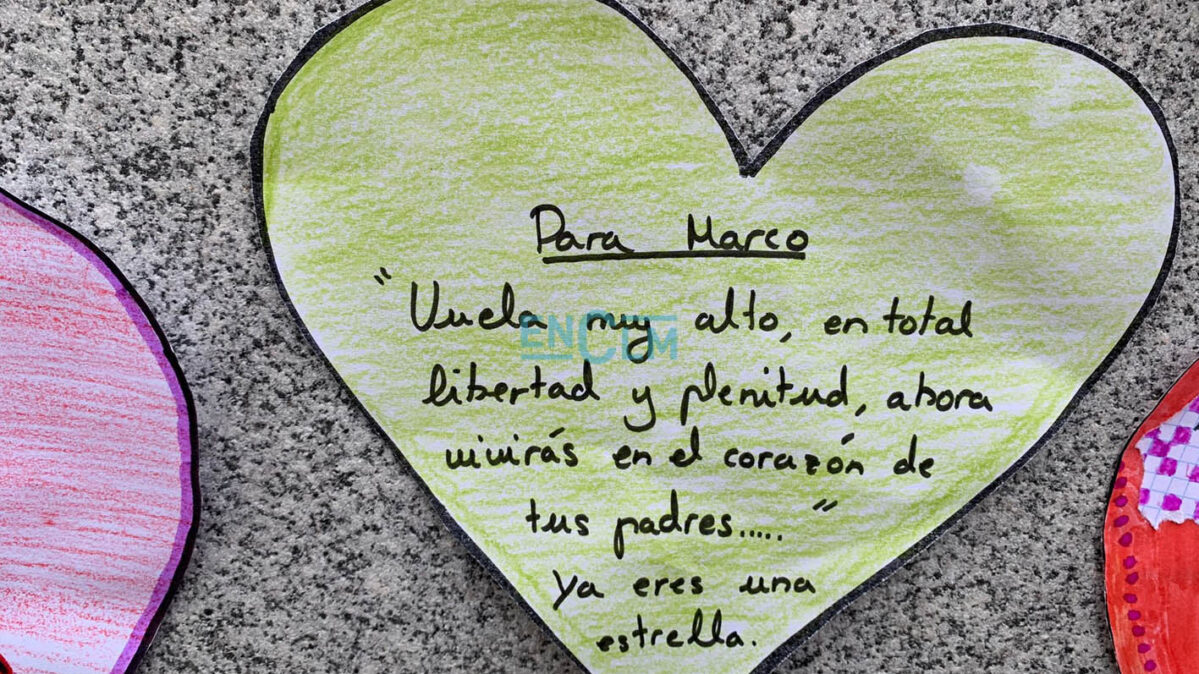 Para Marco
"Vuela muy alto, en total
libertad y plenitud, ahora
vivirás en el corazón de
tus padres....."
ya eres una
estrella.
ENCLM